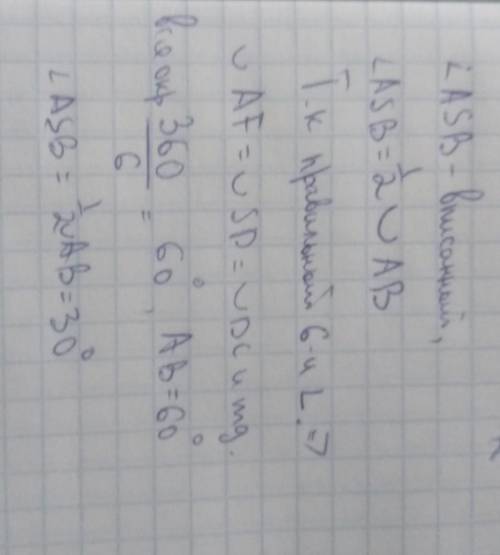 ∠ASB - вписанный,
∠ASB = 1/2 ∪ AB
Т.к правильный 6-и ∠. =>
∪ AF = ∪ SD = ∪ DC и тд.
вся окр 360/6 = 60°, AB = 60°
∠ASB = 1/2 AB = 30°